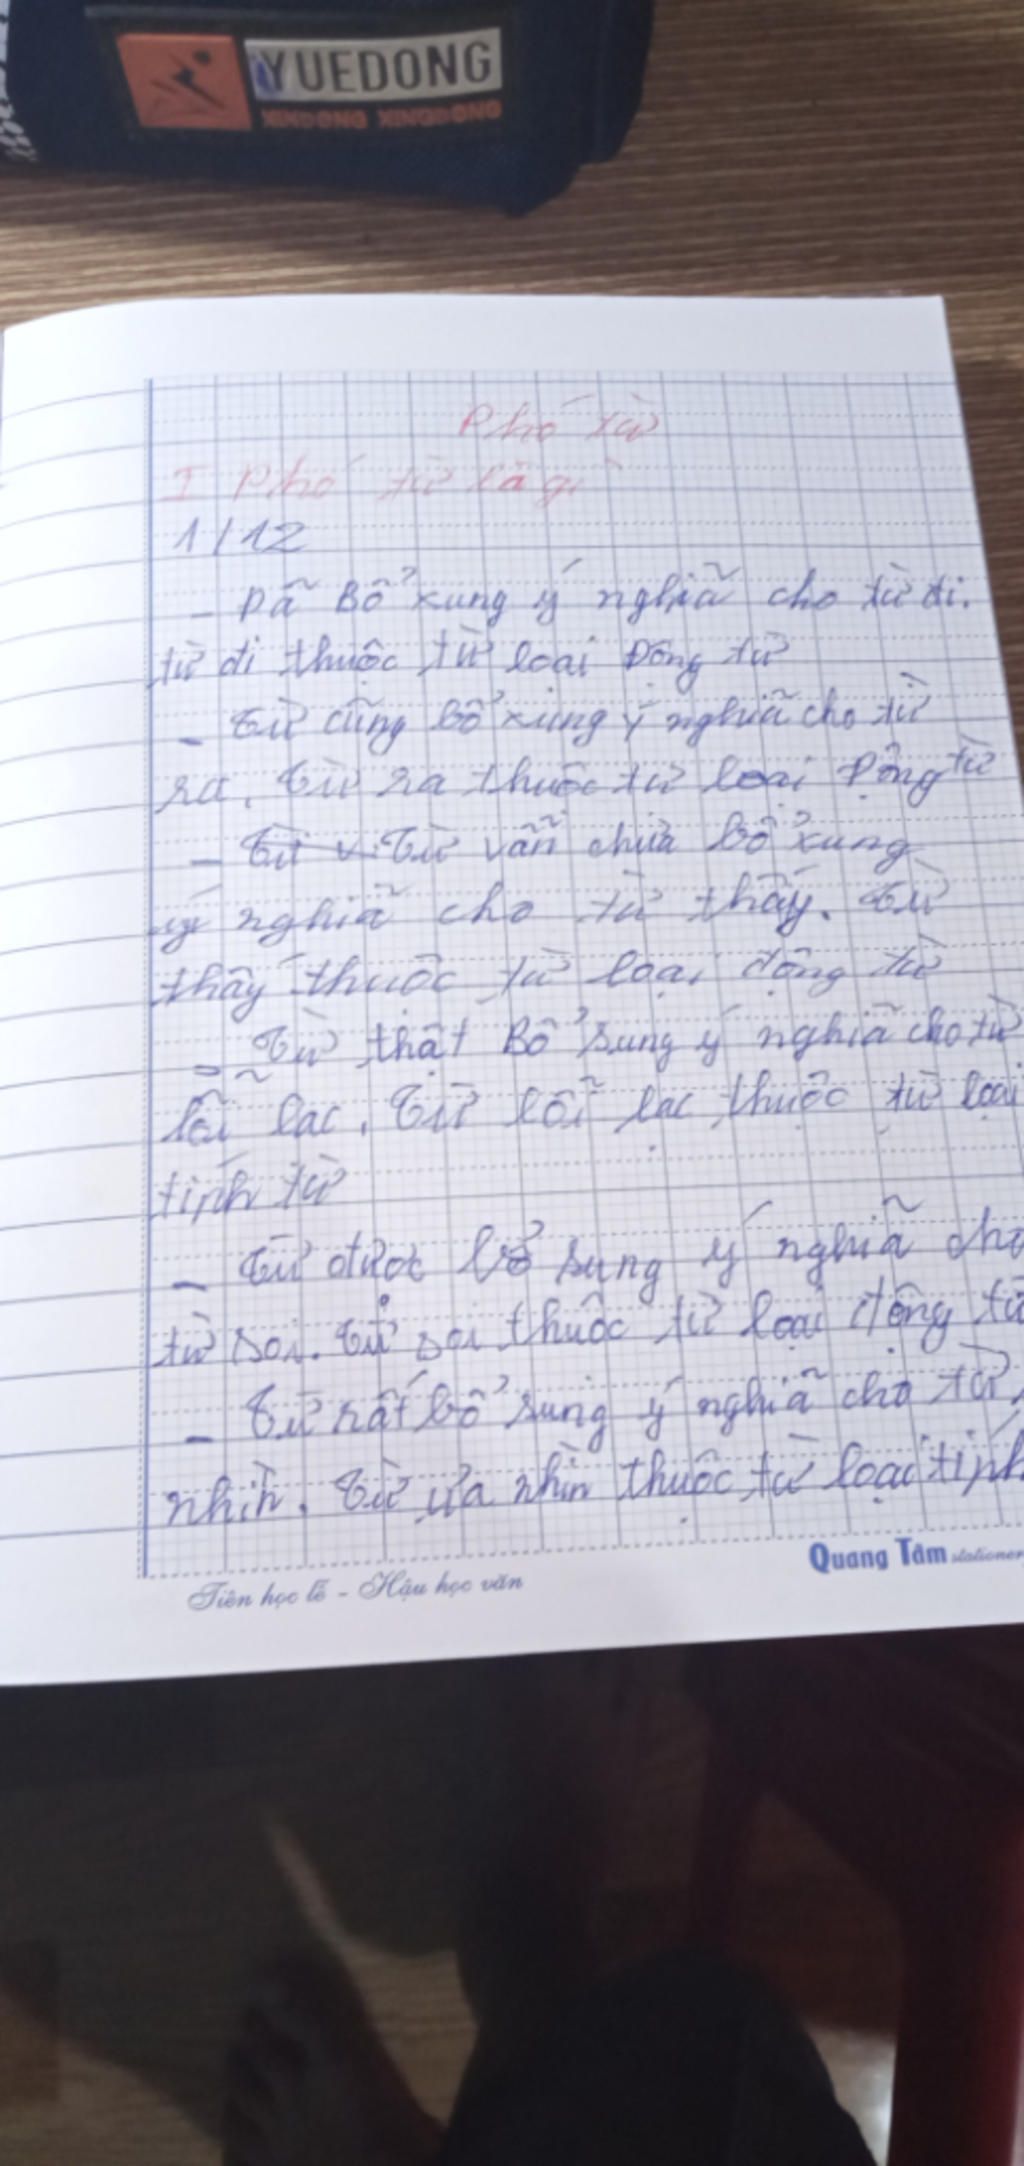 YUEDONG
XINGDONG XINGDONG
Phó từ
I Phó từ là gì
1/12
- Đã Bổ xung ý nghĩa cho từ đi.
từ đi thuộc từ loai Động từ
- Từ cũng bổ xung ý nghĩa cho từ
ra. Từ ra thuộc từ loai Động từ
- Từ vẫn chưa bổ xung
ý nghĩa cho từ thấy. Từ
thấy thuộc từ loại động từ
- Từ thật Bổ sung ý nghĩa cho từ
lỗi lạc. Từ lỗi lạc thuộc từ loại
tính từ
- Từ được bổ sung ý nghĩa cho
từ soi. Từ soi thuộc từ loại động từ
- Từ rất bổ sung ý nghĩa cho từ
nhìn. Từ ưa nhìn thuộc từ loại tính
Quang Tâm stationer
Tiên học lễ - Hậu học văn